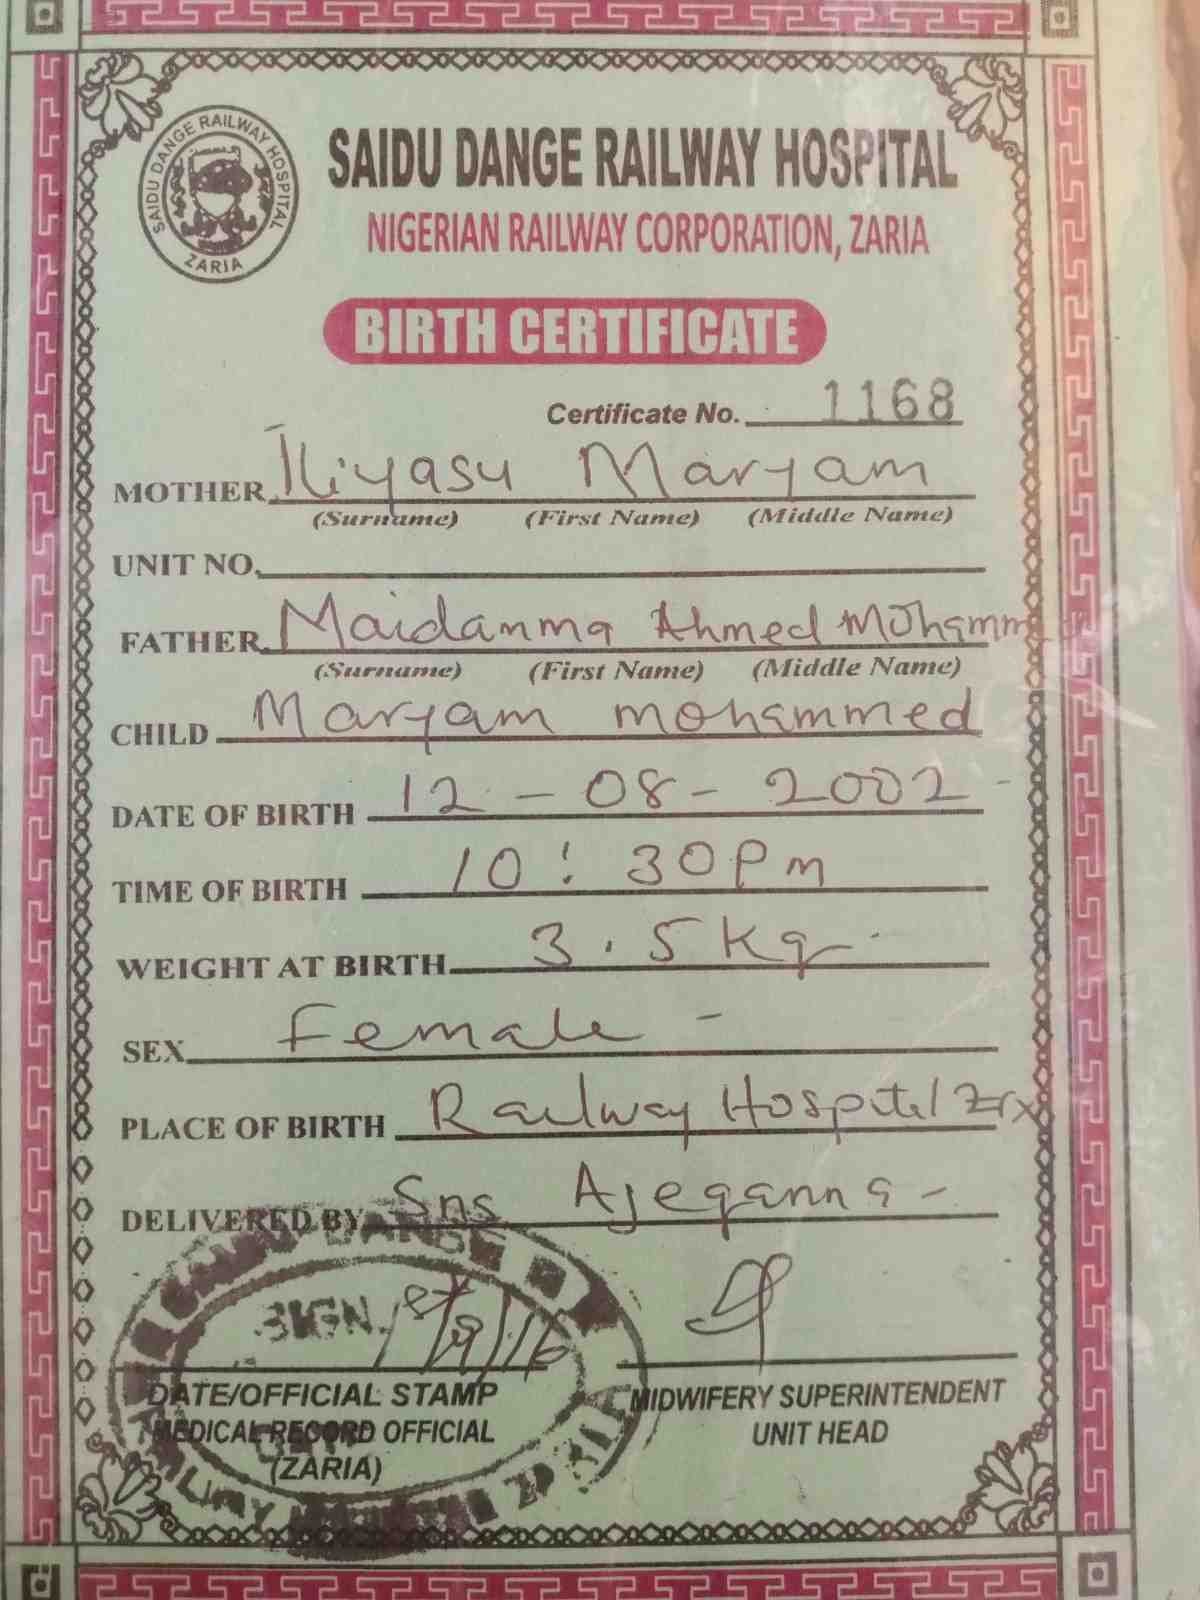 SAIDU DANGE RAILWAY HOSPITAL
ZARIA
SAIDU DANGE RAILWAY HOSPITAL
NIGERIAN RAILWAY CORPORATION, ZARIA
BIRTH CERTIFICATE
Certificate No. 1168
MOTHER Iliyasu Maryam
(Surname) (First Name) (Middle Name)
UNIT NO.
FATHER Maidamma Ahmed Mohamm
(Surname) (First Name) (Middle Name)
CHILD Maryam mohammed
DATE OF BIRTH 12 - 08 - 2002
TIME OF BIRTH 10:30pm
WEIGHT AT BIRTH 3.5kg
SEX Female -
PLACE OF BIRTH Railway Hospital
DELIVERED BY Sns Ajeganna -
SIGN.
DATE/OFFICIAL STAMP
MEDICAL RECORD OFFICIAL
(ZARIA)
MIDWIFERY SUPERINTENDENT
UNIT HEAD